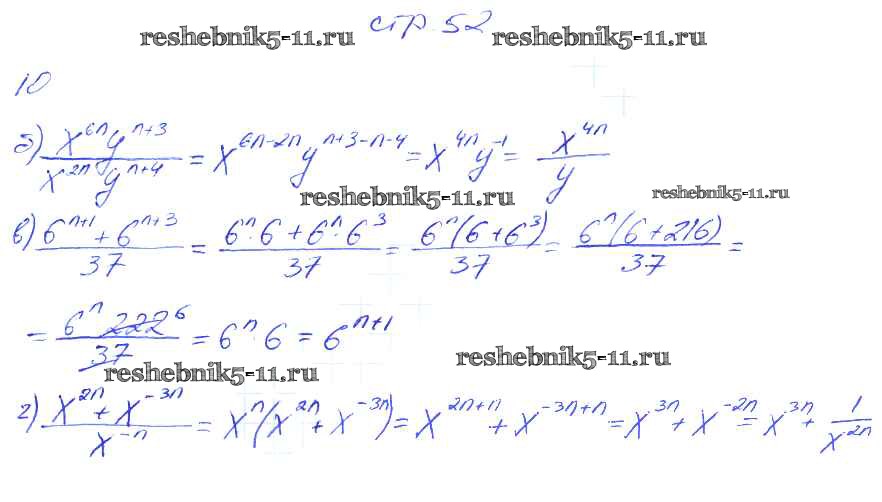 стр. 52
reshebnik5-11.ru reshebnik5-11.ru
10
б) \frac{x^{6n} y^{n+3}}{x^{2n} y^{n+4}} = x^{6n-2n} y^{n+3-n-4} = x^{4n} y^{-1} = \frac{x^{4n}}{y}
reshebnik5-11.ru reshebnik5-11.ru
в) \frac{6^{n+1} + 6^{n+3}}{37} = \frac{6^n \cdot 6 + 6^n \cdot 6^3}{37} = \frac{6^n (6 + 6^3)}{37} = \frac{6^n (6 + 216)}{37} =
= \frac{6^n 222^6}{37} = 6^n \cdot 6 = 6^{n+1}
reshebnik5-11.ru
reshebnik5-11.ru
г) \frac{x^{2n} + x^{-3n}}{x^{-n}} = x^n (x^{2n} + x^{-3n}) = x^{2n+n} + x^{-3n+n} = x^{3n} + x^{-2n} = x^{3n} + \frac{1}{x^{2n}}